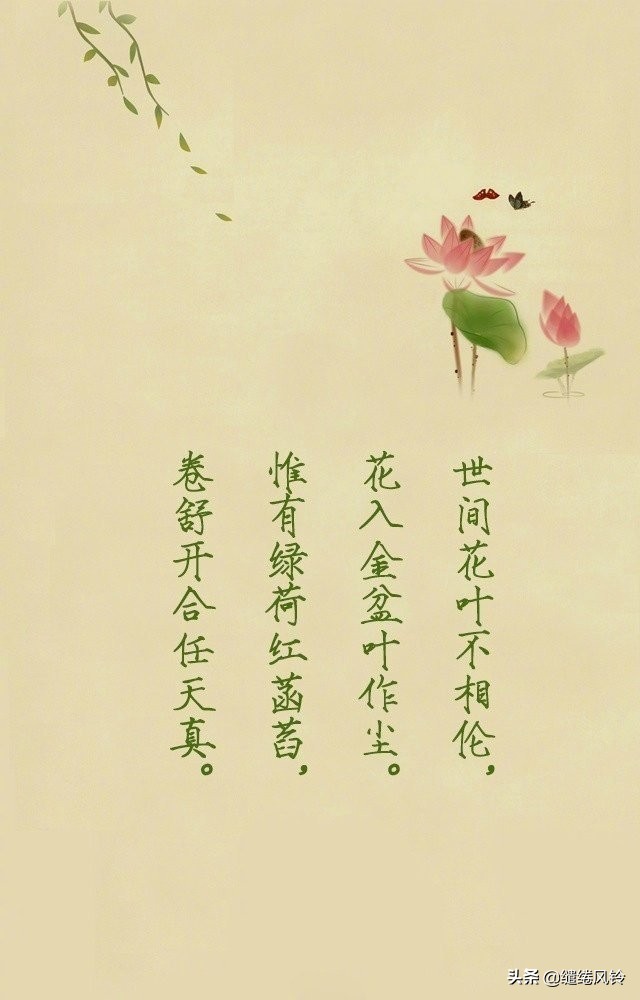 世间花叶不相伦，
花入金盆叶作尘。
惟有绿荷红菡萏，
卷舒开合任天真。
头条 @缱绻风铃